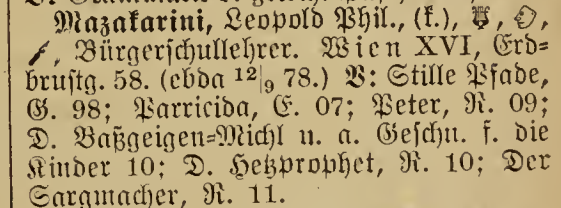 Mazakarini, Leopold Phil., (k.),
Bürgerschullehrer. Wien XVI, Erd=
brustg. 58. (ebda 12|9 78.) V: Stille Pfade,
G. 98; Parricida, E. 07; Peter, R. 09;
D. Baßgeigen=Michl u. a. Geschn. f. die
Kinder 10; D. Hetzprophet, R. 10; Der
Sargmacher, R. 11.